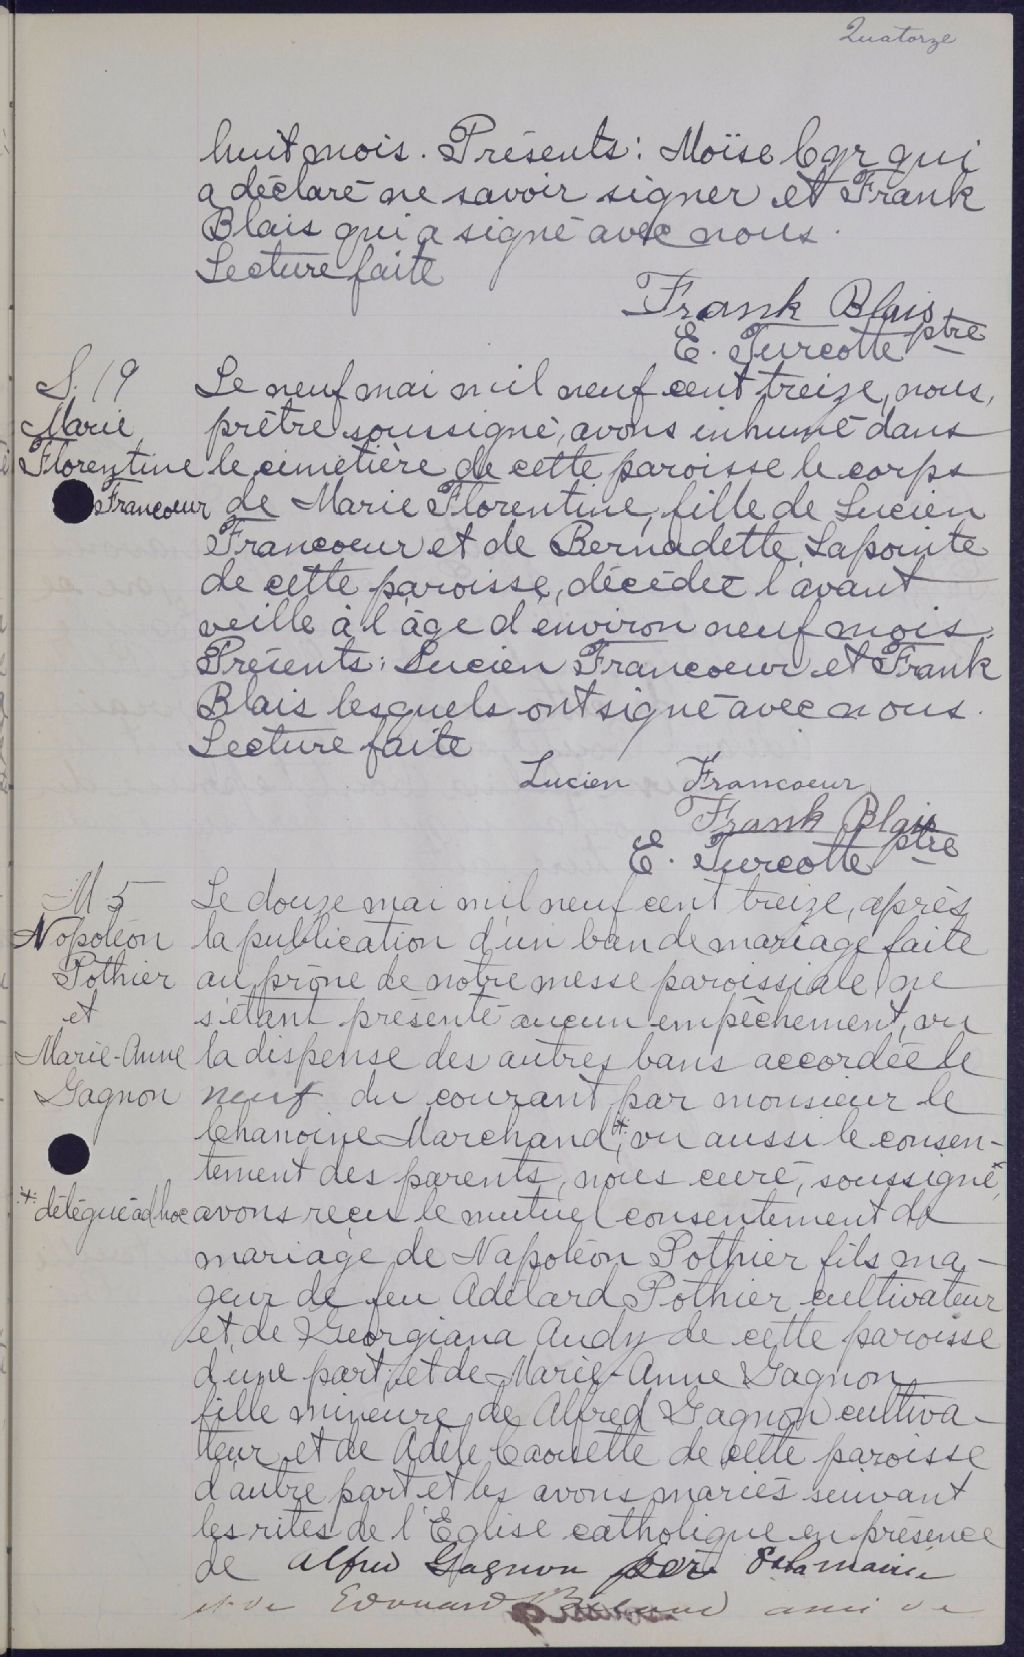 Quatorze
huit mois. Présents: Moïse Cyr qui
a déclaré ne savoir signer et Frank
Blais qui a signé avec nous.
Lecture faite
Frank Blais
E. Turcotte ptre
S. 19
Marie
Florentine
Francoeur
Le neuf mai mil neuf cent treize, nous,
prêtre soussigné, avons inhumé dans
le cimetière de cette paroisse le corps
de Marie Florentine, fille de Lucien
Francoeur et de Bernadette Lapointe
de cette paroisse, décédée l'avant
veille à l'âge d'environ neuf mois.
Présents: Lucien Francoeur et Frank
Blais lesquels ont signé avec nous.
Lecture faite
Lucien Francoeur
Frank Blais
E. Turcotte ptre
M 5
Napoléon
Pothier
et
Marie-Anne
Gagnon
* délégué ad hoc
Le douze mai mil neuf cent treize, après
la publication d'un ban de mariage faite
au prône de notre messe paroissiale ne
s'étant présenté aucun empêchement, vu
la dispense des autres bans accordée le
neuf du courant par monsieur le
Chanoine Marchand*, vu aussi le consen-
tement des parents, nous curé, soussigné,
avons reçu le mutuel consentement de
mariage de Napoléon Pothier fils ma-
jeur de feu Adélard Pothier cultivateur
et de Georgiana Audy de cette paroisse
d'une part, et de Marie-Anne Gagnon
fille mineure de Alfred Gagnon cultiva-
teur et de Adèle Caouette de cette paroisse
d'autre part et les avons mariés suivant
les rites de l'Eglise catholique en présence
de Alfred Gagnon père de la mariée
et de Edouard ami de